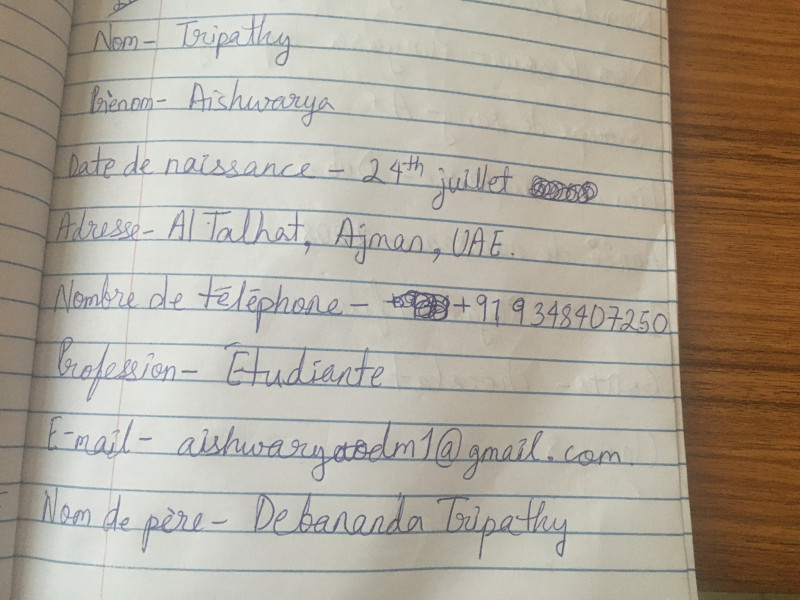 Nom- Tripathy
Prénom- Aishwarya
Date de naissance - 24th juillet
Adresse- Al Talhat, Ajman, UAE.
Nombre de téléphone - +91 9348407250
Profession- Etudiante
E-mail- @gmail.com
Nom de père- Debananda Tripathy